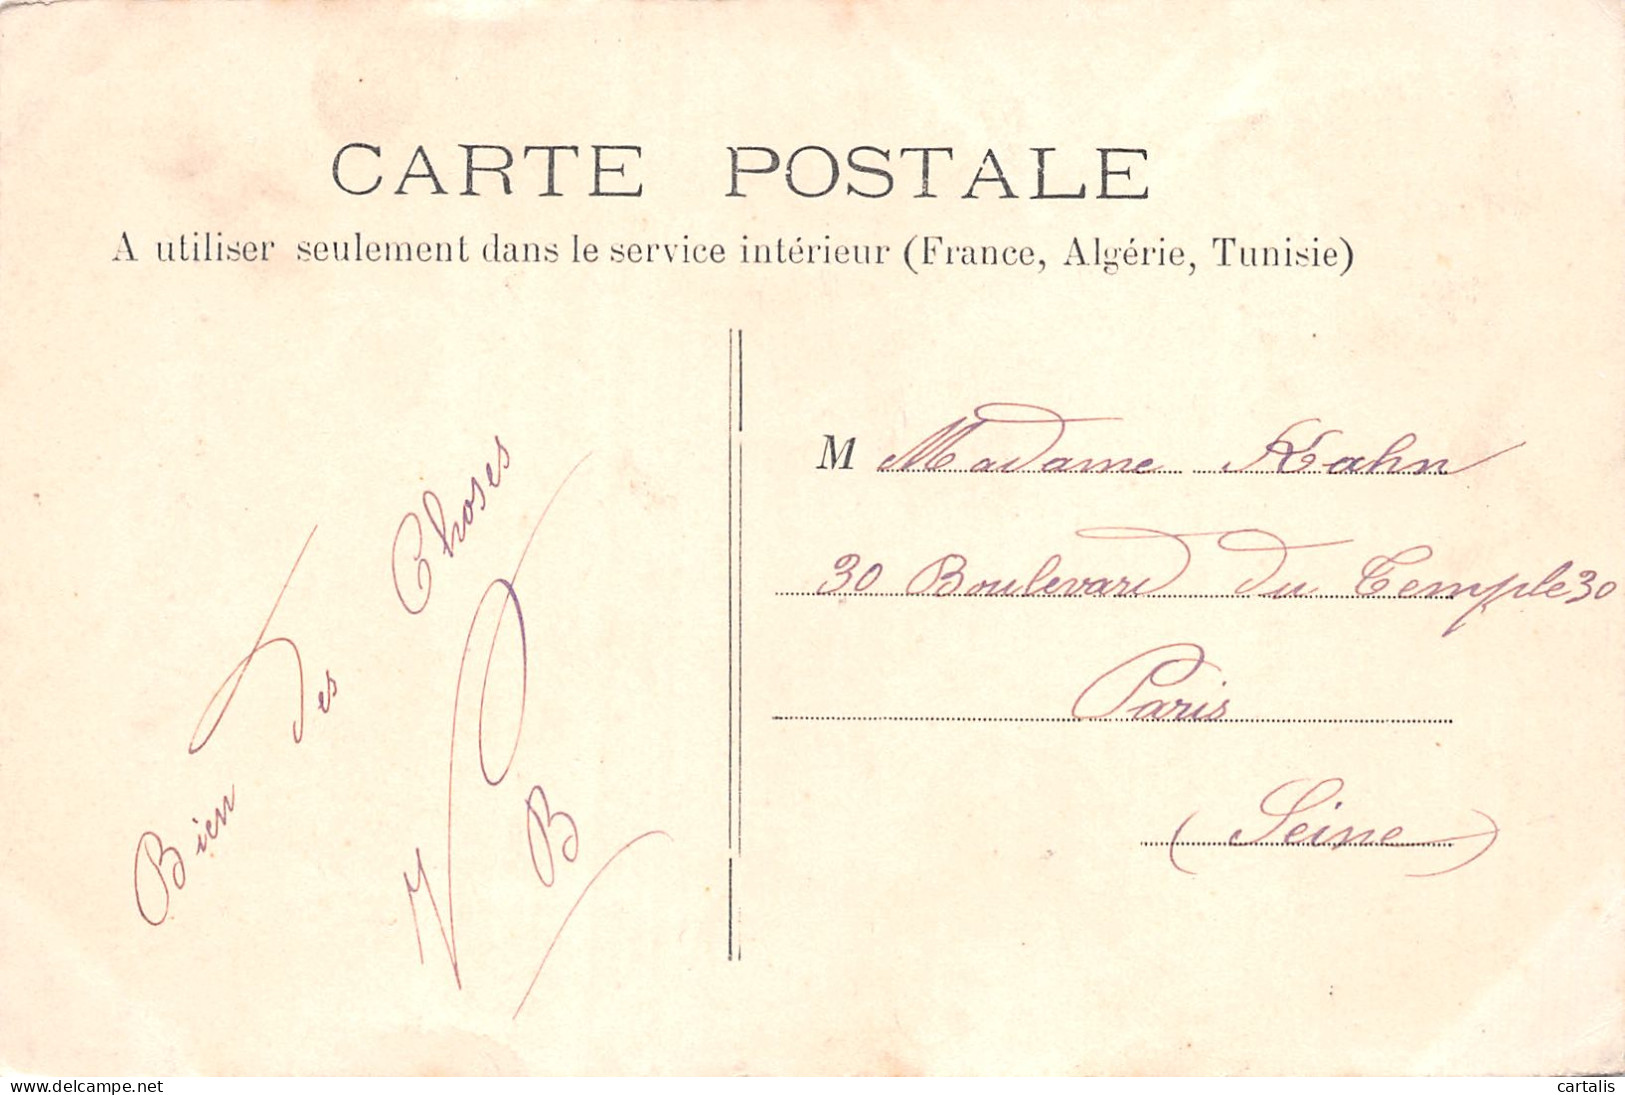 CARTE POSTALE
A utiliser seulement dans le service intérieur (France, Algérie, Tunisie)
Bien des Choses
B
M Madame Kahn
30 Boulevard du Temple 30
Paris
(Seine)
delcampe.net
cartalis